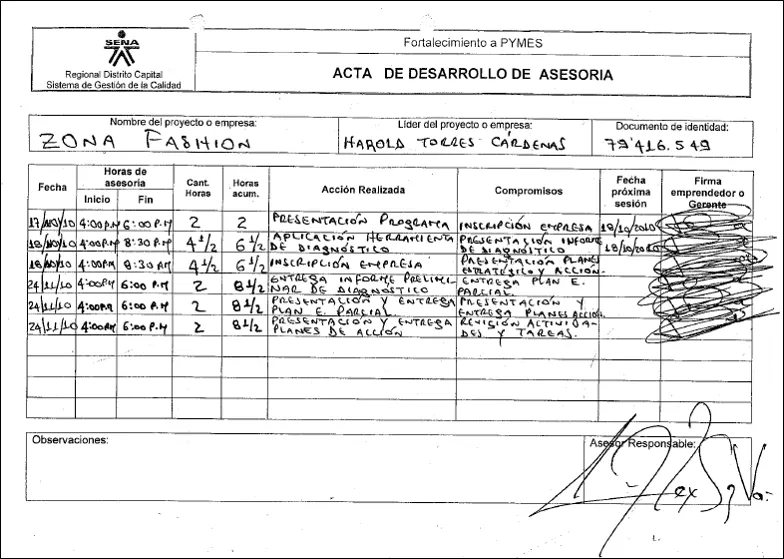 SENA
Regional Distrito Capital
Sistema de Gestión de la Calidad
Fortalecimiento a PYMES
ACTA DE DESARROLLO DE ASESORIA
Nombre del proyecto o empresa:
ZONA FASHION
Líder del proyecto o empresa:
HAROLD TORRES CÁRDENAS
Documento de identidad:
79'416.549
Fecha
Horas de asesoria
Inicio
Fin
Cant. Horas
Horas acum.
Acción Realizada
Compromisos
Fecha próxima sesión
Firma emprendedor o Gerente
17/NO/10 4:00 P.M 6:00 P.M 2 2 PRESENTACIÓN PROGRAMA INSCRIPCIÓN EMPRESA 18/10/2010
18/NO/10 4:00 P.M 8:30 P.M 4 1/2 6 1/2 APLICACIÓN HERRAMIENTA DE DIAGNÓSTICO PRESENTACIÓN INFORME DE DIAGNÓSTICO 18/10/2010
18/NO/10 4:00 PM 8:30 PM 4 1/2 6 1/2 INSCRIPCIÓN EMPRESA PRESENTACIÓN PLANES ESTRATÉGICO Y ACCIÓN.
24/11/10 4:00 PM 6:00 P.M 2 8 1/2 ENTREGA INFORME PRELIMINAR DE DIAGNÓSTICO ENTREGA PLAN E. PARCIAL.
24/11/10 4:00 PM 6:00 P.M 2 8 1/2 PRESENTACIÓN Y ENTREGA PLAN E. PARCIAL. PRESENTACIÓN Y ENTREGA PLANES ACCIÓN.
24/11/10 4:00 PM 6:00 P.M 2 8 1/2 PRESENTACIÓN Y ENTREGA PLANES DE ACCIÓN REVISIÓN ACTIVIDADES Y TAREAS.
Observaciones:
Asesor Responsable: